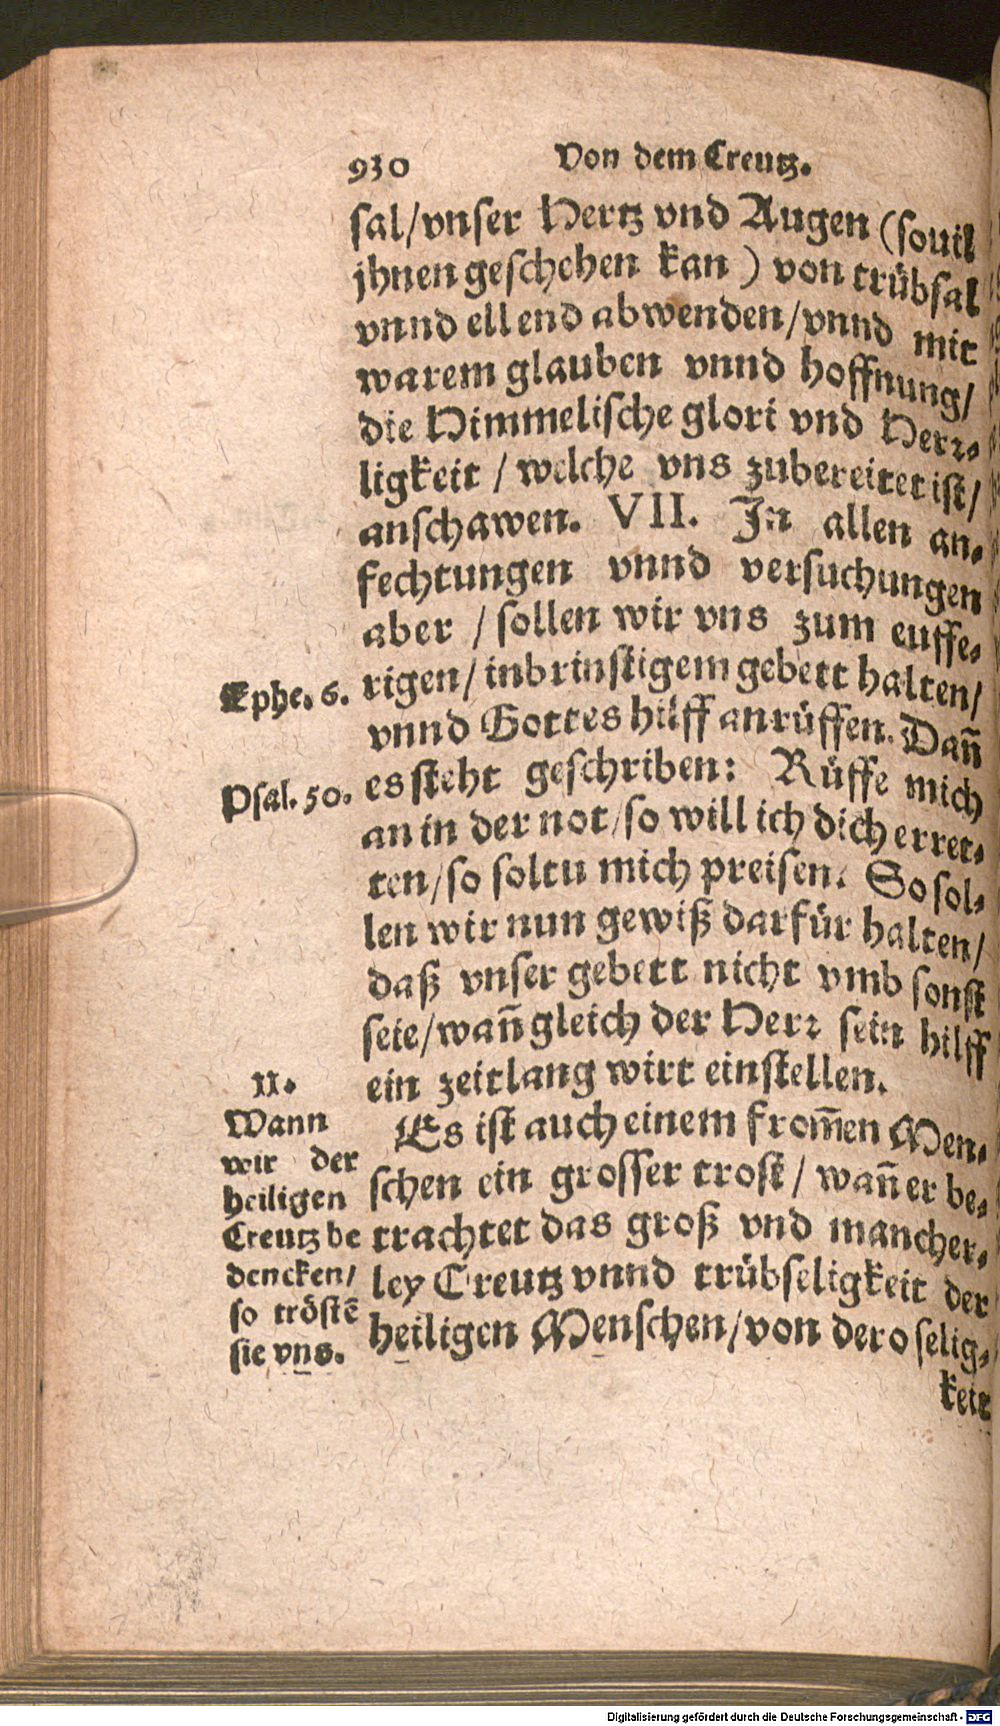 930 Von dem Creutz.
sal/vnser Hertz vnd Augen (souil
jhnen geschehen kan) von trübsal
vnnd ellend abwenden/vnnd mit
warem glauben vnnd hoffnung/
die Himmelische glori vnd Herz-
ligkeit / welche vns zubereitet ist/
anschawen. VII. In allen an-
fechtungen vnnd versuchungen
aber / sollen wir vns zum euffe-
rigen/ inbrinstigem gebett halten/
Ephe. 6.
vnnd Gottes hilff anrüffen. Dañ
es steht geschriben: Rüffe mich
Psal. 50.
an in der not/so will ich dich erret-
ten/so soltu mich preisen. So sol-
len wir nun gewiß darfür halten/
daß vnser gebett nicht vmb sonst
seie/wañ gleich der Herz sein hilff
ein zeitlang wirt einstellen.
Es ist auch einem from̃en Men-
schen ein grosser trost / wañ er be-
trachtet das groß vnd mancher-
ley Creutz vnnd trübseligkeit der
heiligen Menschen/von dero selig-
keit
II.
Wann
wir der
heiligen
Creutz be
dencken/
so tröstẽ
sie vns.
Digitalisierung gefördert durch die Deutsche Forschungsgemeinschaft - DFG